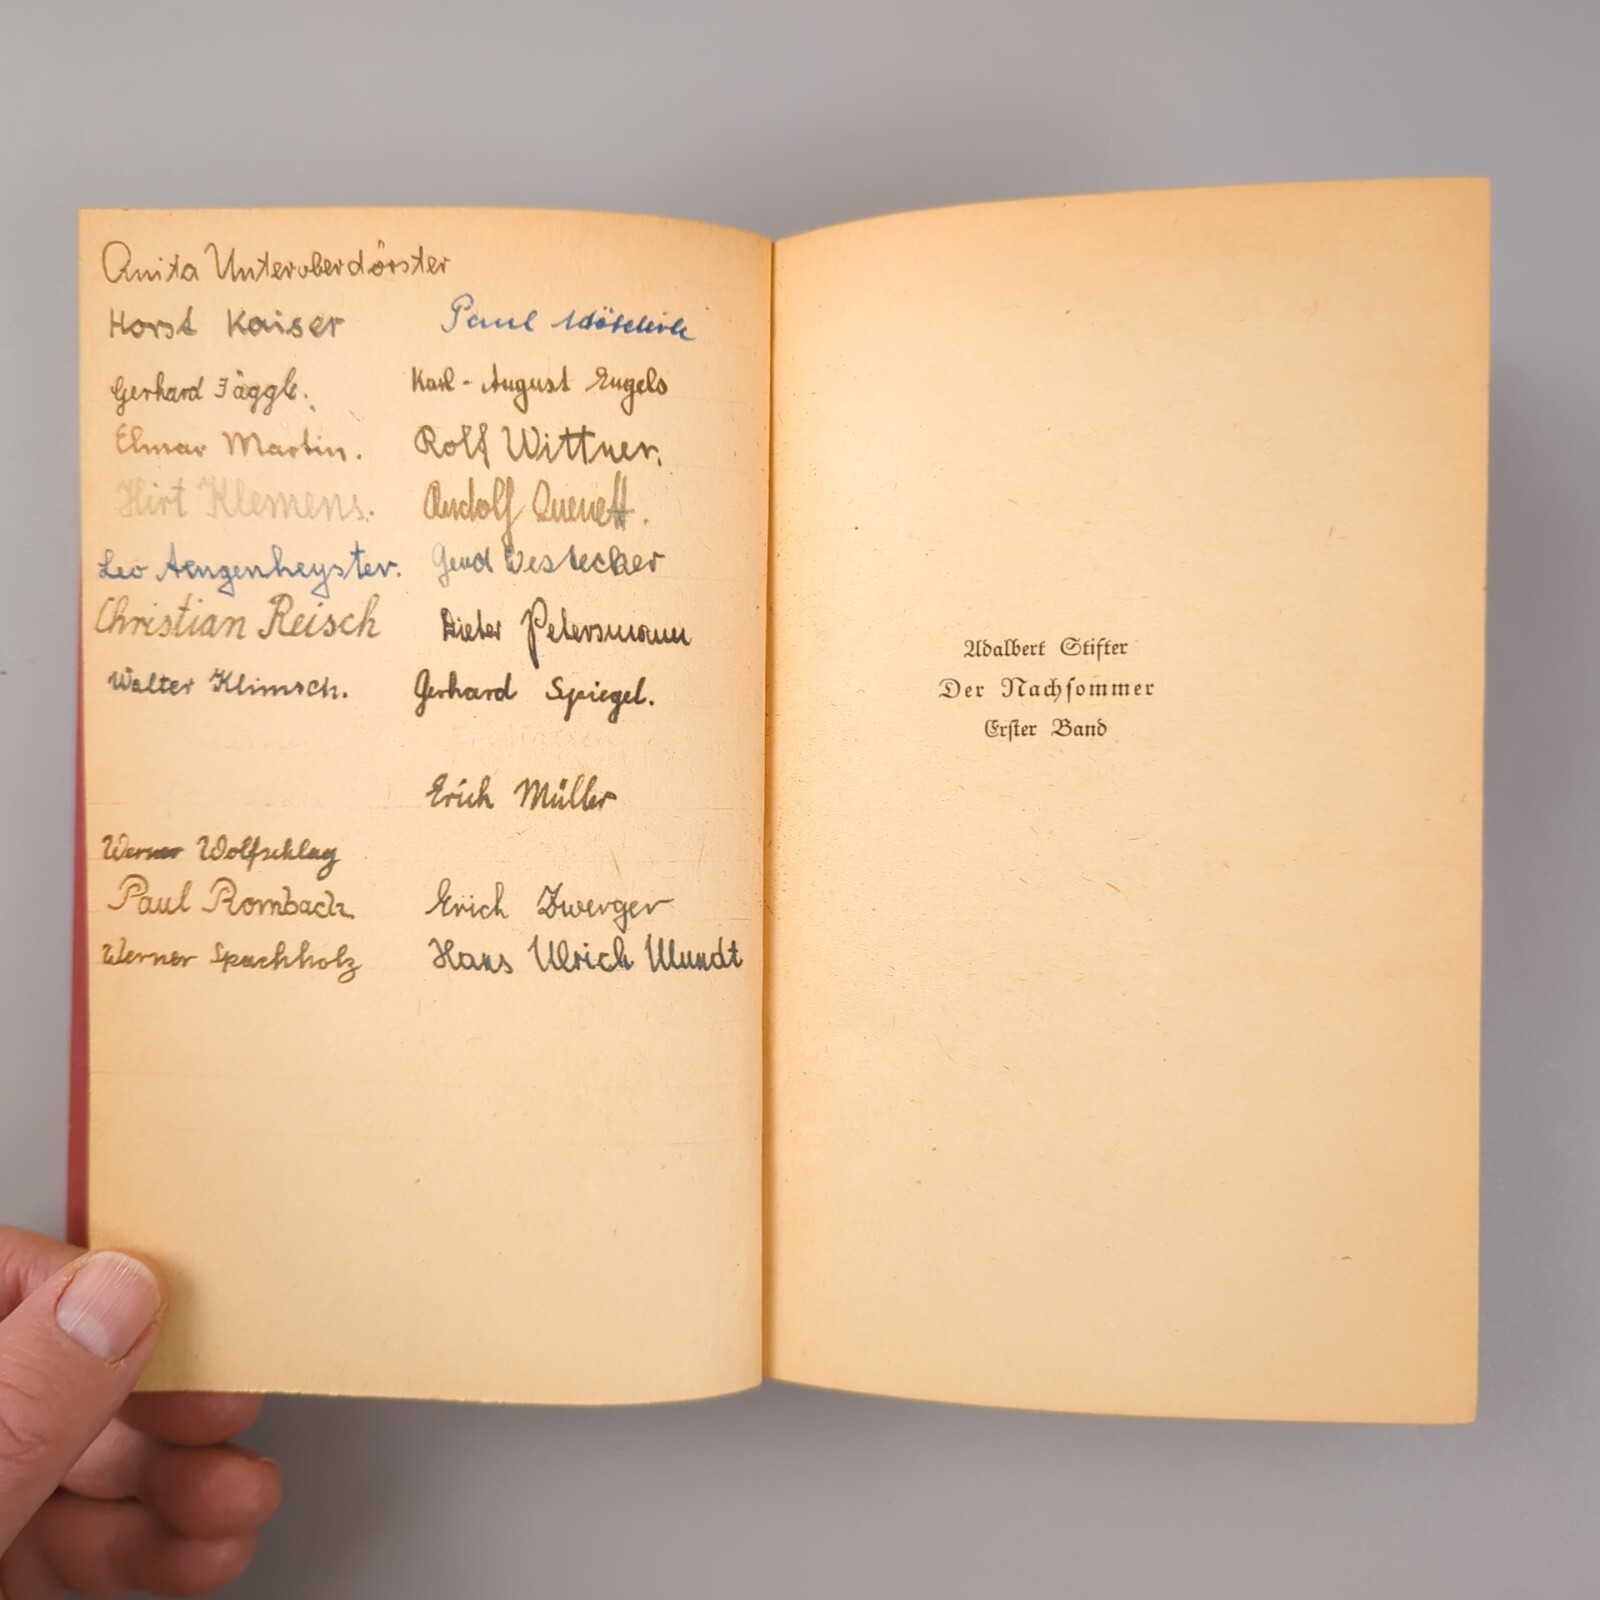 Anita Unteroberdörster
Horst Kaiser
Gerhard Jäggle.
Elmar Martin.
Hirt Klemens.
Leo Aengenheyster.
Christian Reisch
Walter Klimsch.
Werner Wolfschlag
Paul Rombach
Werner Spachholz
Paul
Karl-August Engels
Rolf Wittner.
Rudolf
Gerd Westecker
Dieter Petersmann
Gerhard Spiegel.
Erich Müller
Erich Zwerger
Hans Ulrich Wundt
Adalbert Stifter
Der Nachsommer
Erster Band